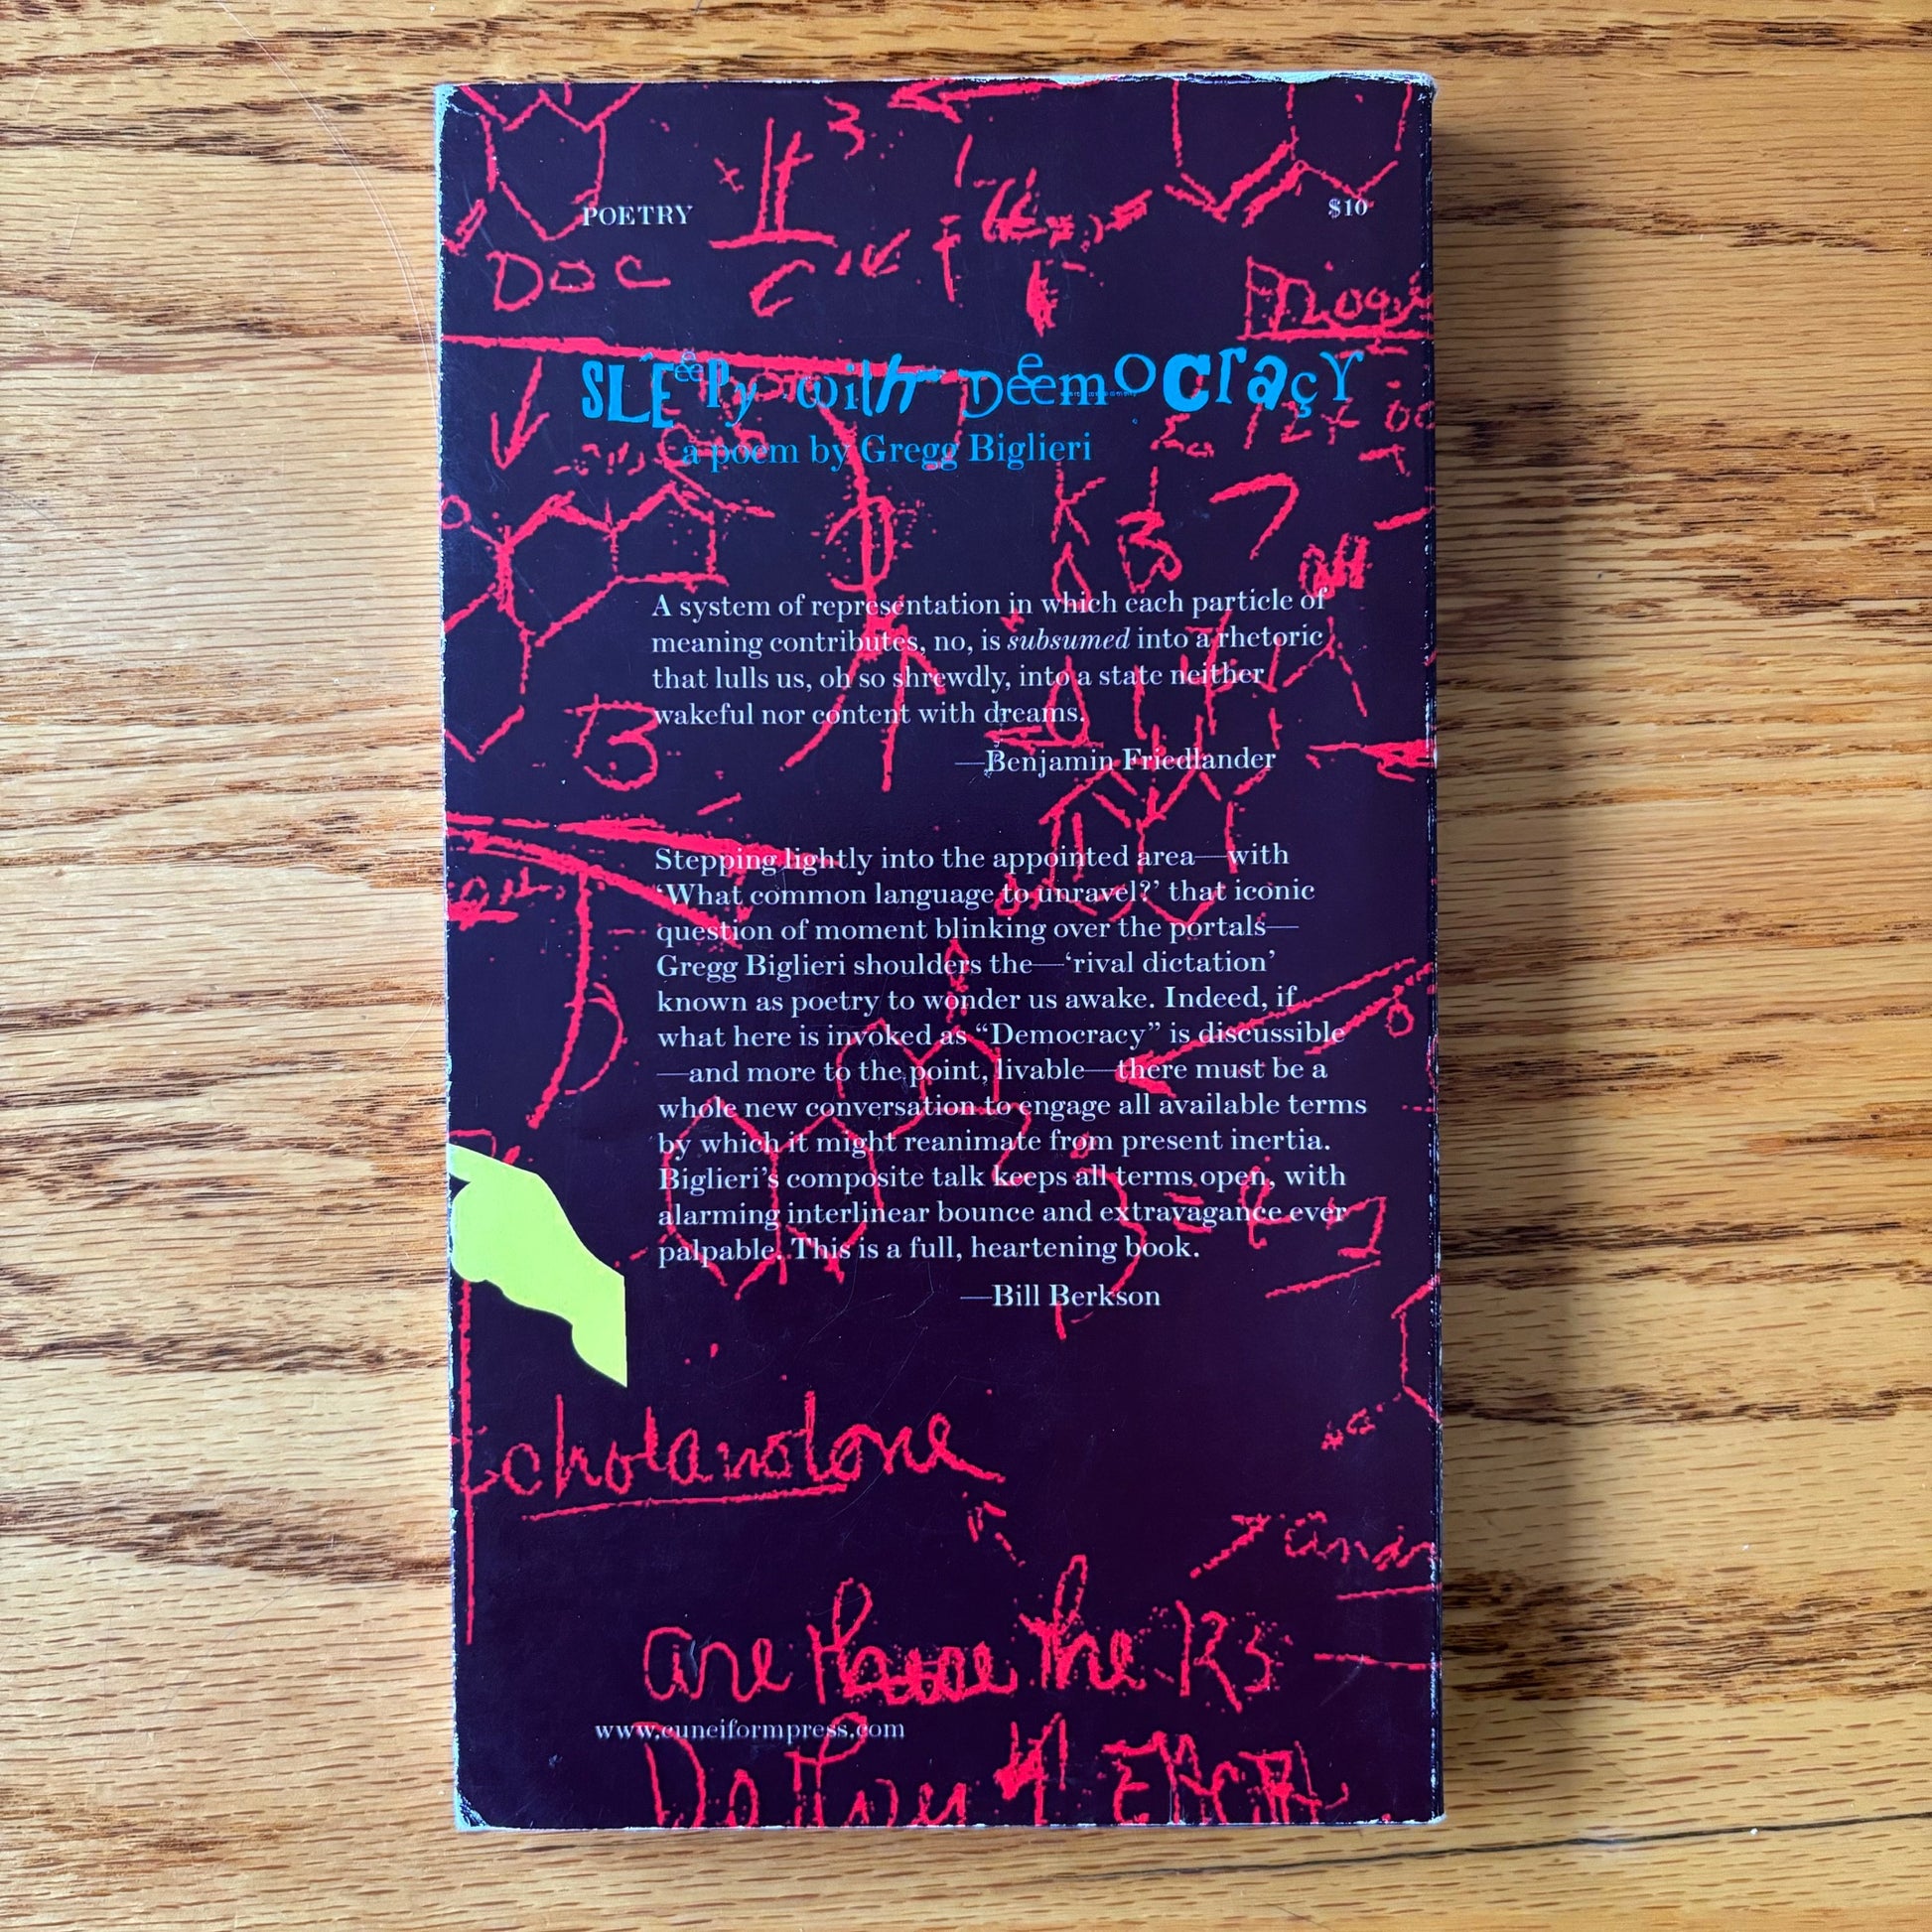 POETRY
$10
DOC
SLEepy with DeemOcraçy
a poem by Gregg Biglieri
A system of representation in which each particle of
meaning contributes, no, is subsumed into a rhetoric
that lulls us, oh so shrewdly, into a state neither
wakeful nor content with dreams.
—Benjamin Friedlander
Stepping lightly into the appointed area—with
‘What common language to unravel?’ that iconic
question of moment blinking over the portals—
Gregg Biglieri shoulders the—‘rival dictation’
known as poetry to wonder us awake. Indeed, if
what here is invoked as “Democracy” is discussible
—and more to the point, livable—there must be a
whole new conversation to engage all available terms
by which it might reanimate from present inertia.
Biglieri’s composite talk keeps all terms open, with
alarming interlinear bounce and extravagance ever
palpable. This is a full, heartening book.
—Bill Berkson
are the
www.cuneiformpress.com